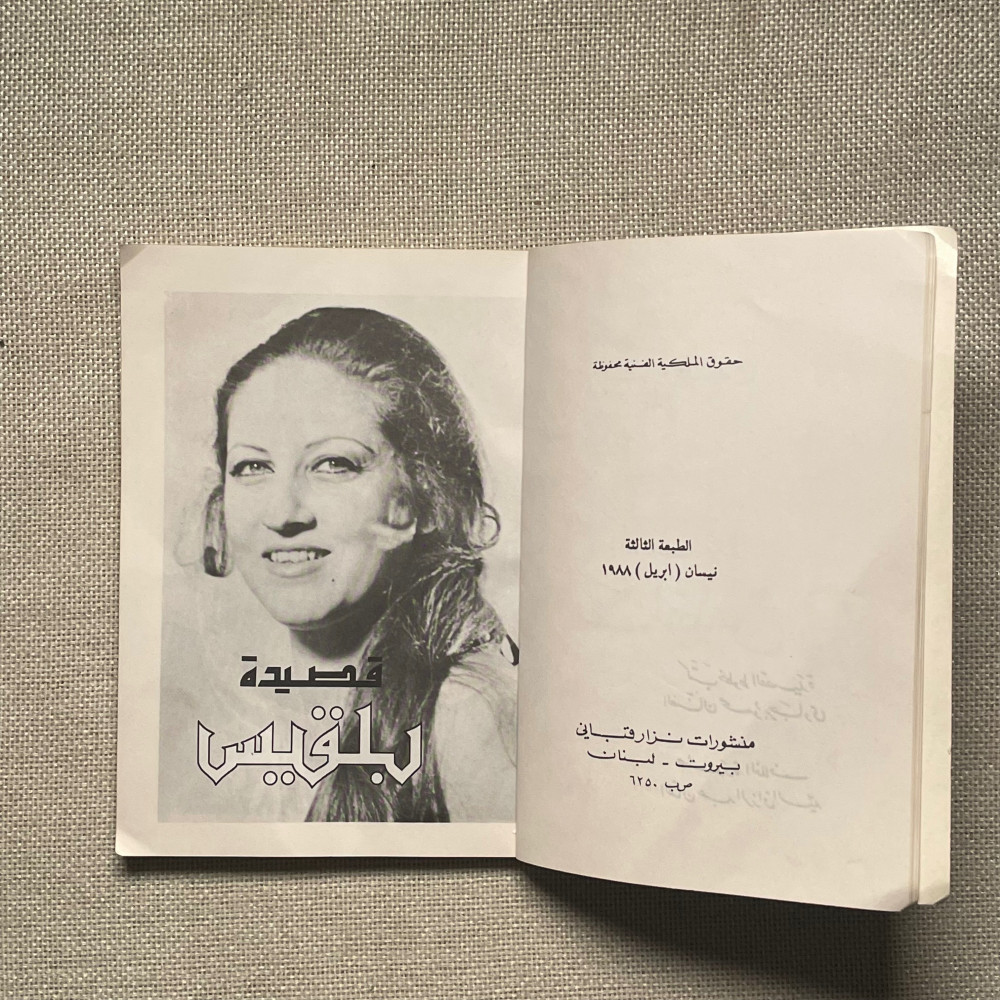 قصيدة
بلقيس
حقوق الملكية الفنية محفوظة
الطبعة الثالثة
نيسان ( ابريل ) ١٩٨٨
منشورات نزار قباني
بيروت - لبنان
ص ب ٦٢٥٠